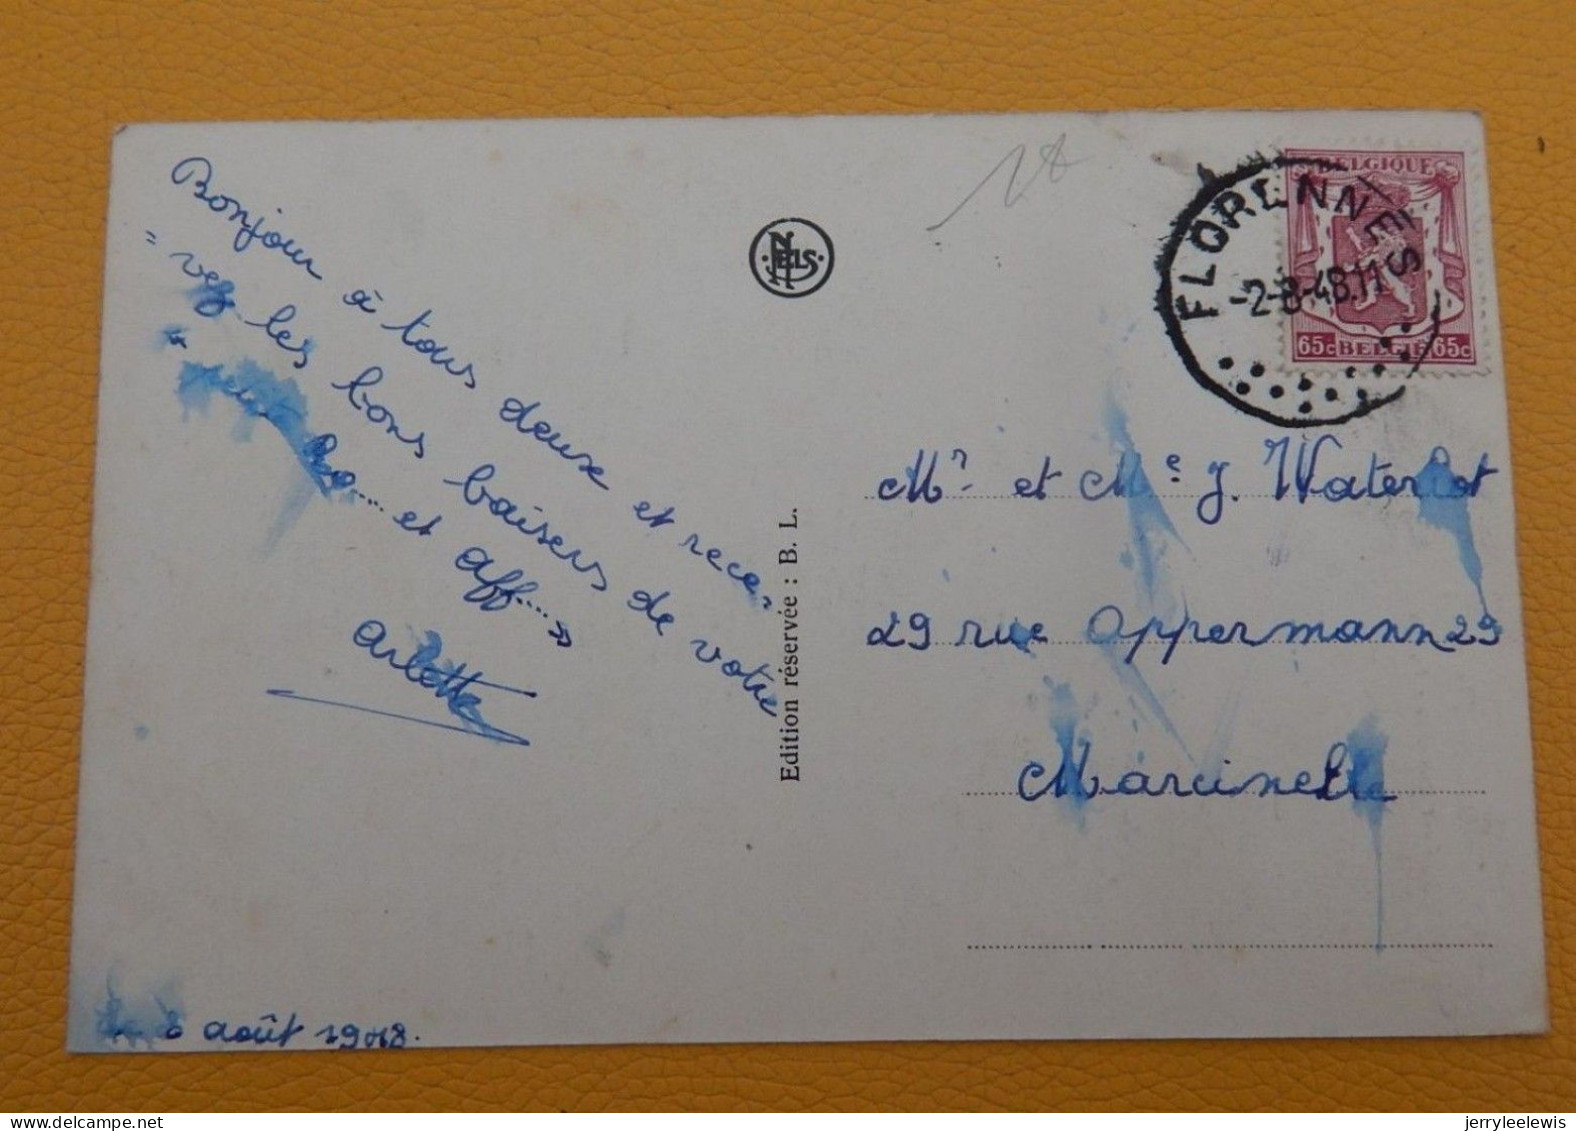 Bonjour à tous deux et rece=
=vez les bons baisers de votre
et aff....»
Arlette
août 1948.
NELS
Edition réservée : B. L.
BELGIQUE
65c BELGIE 65c
FLORENNES
-2-8-48.11
Mr et Me J. Waterlot
29 rue Oppermann 29
Marcinelle
jerryleelewis